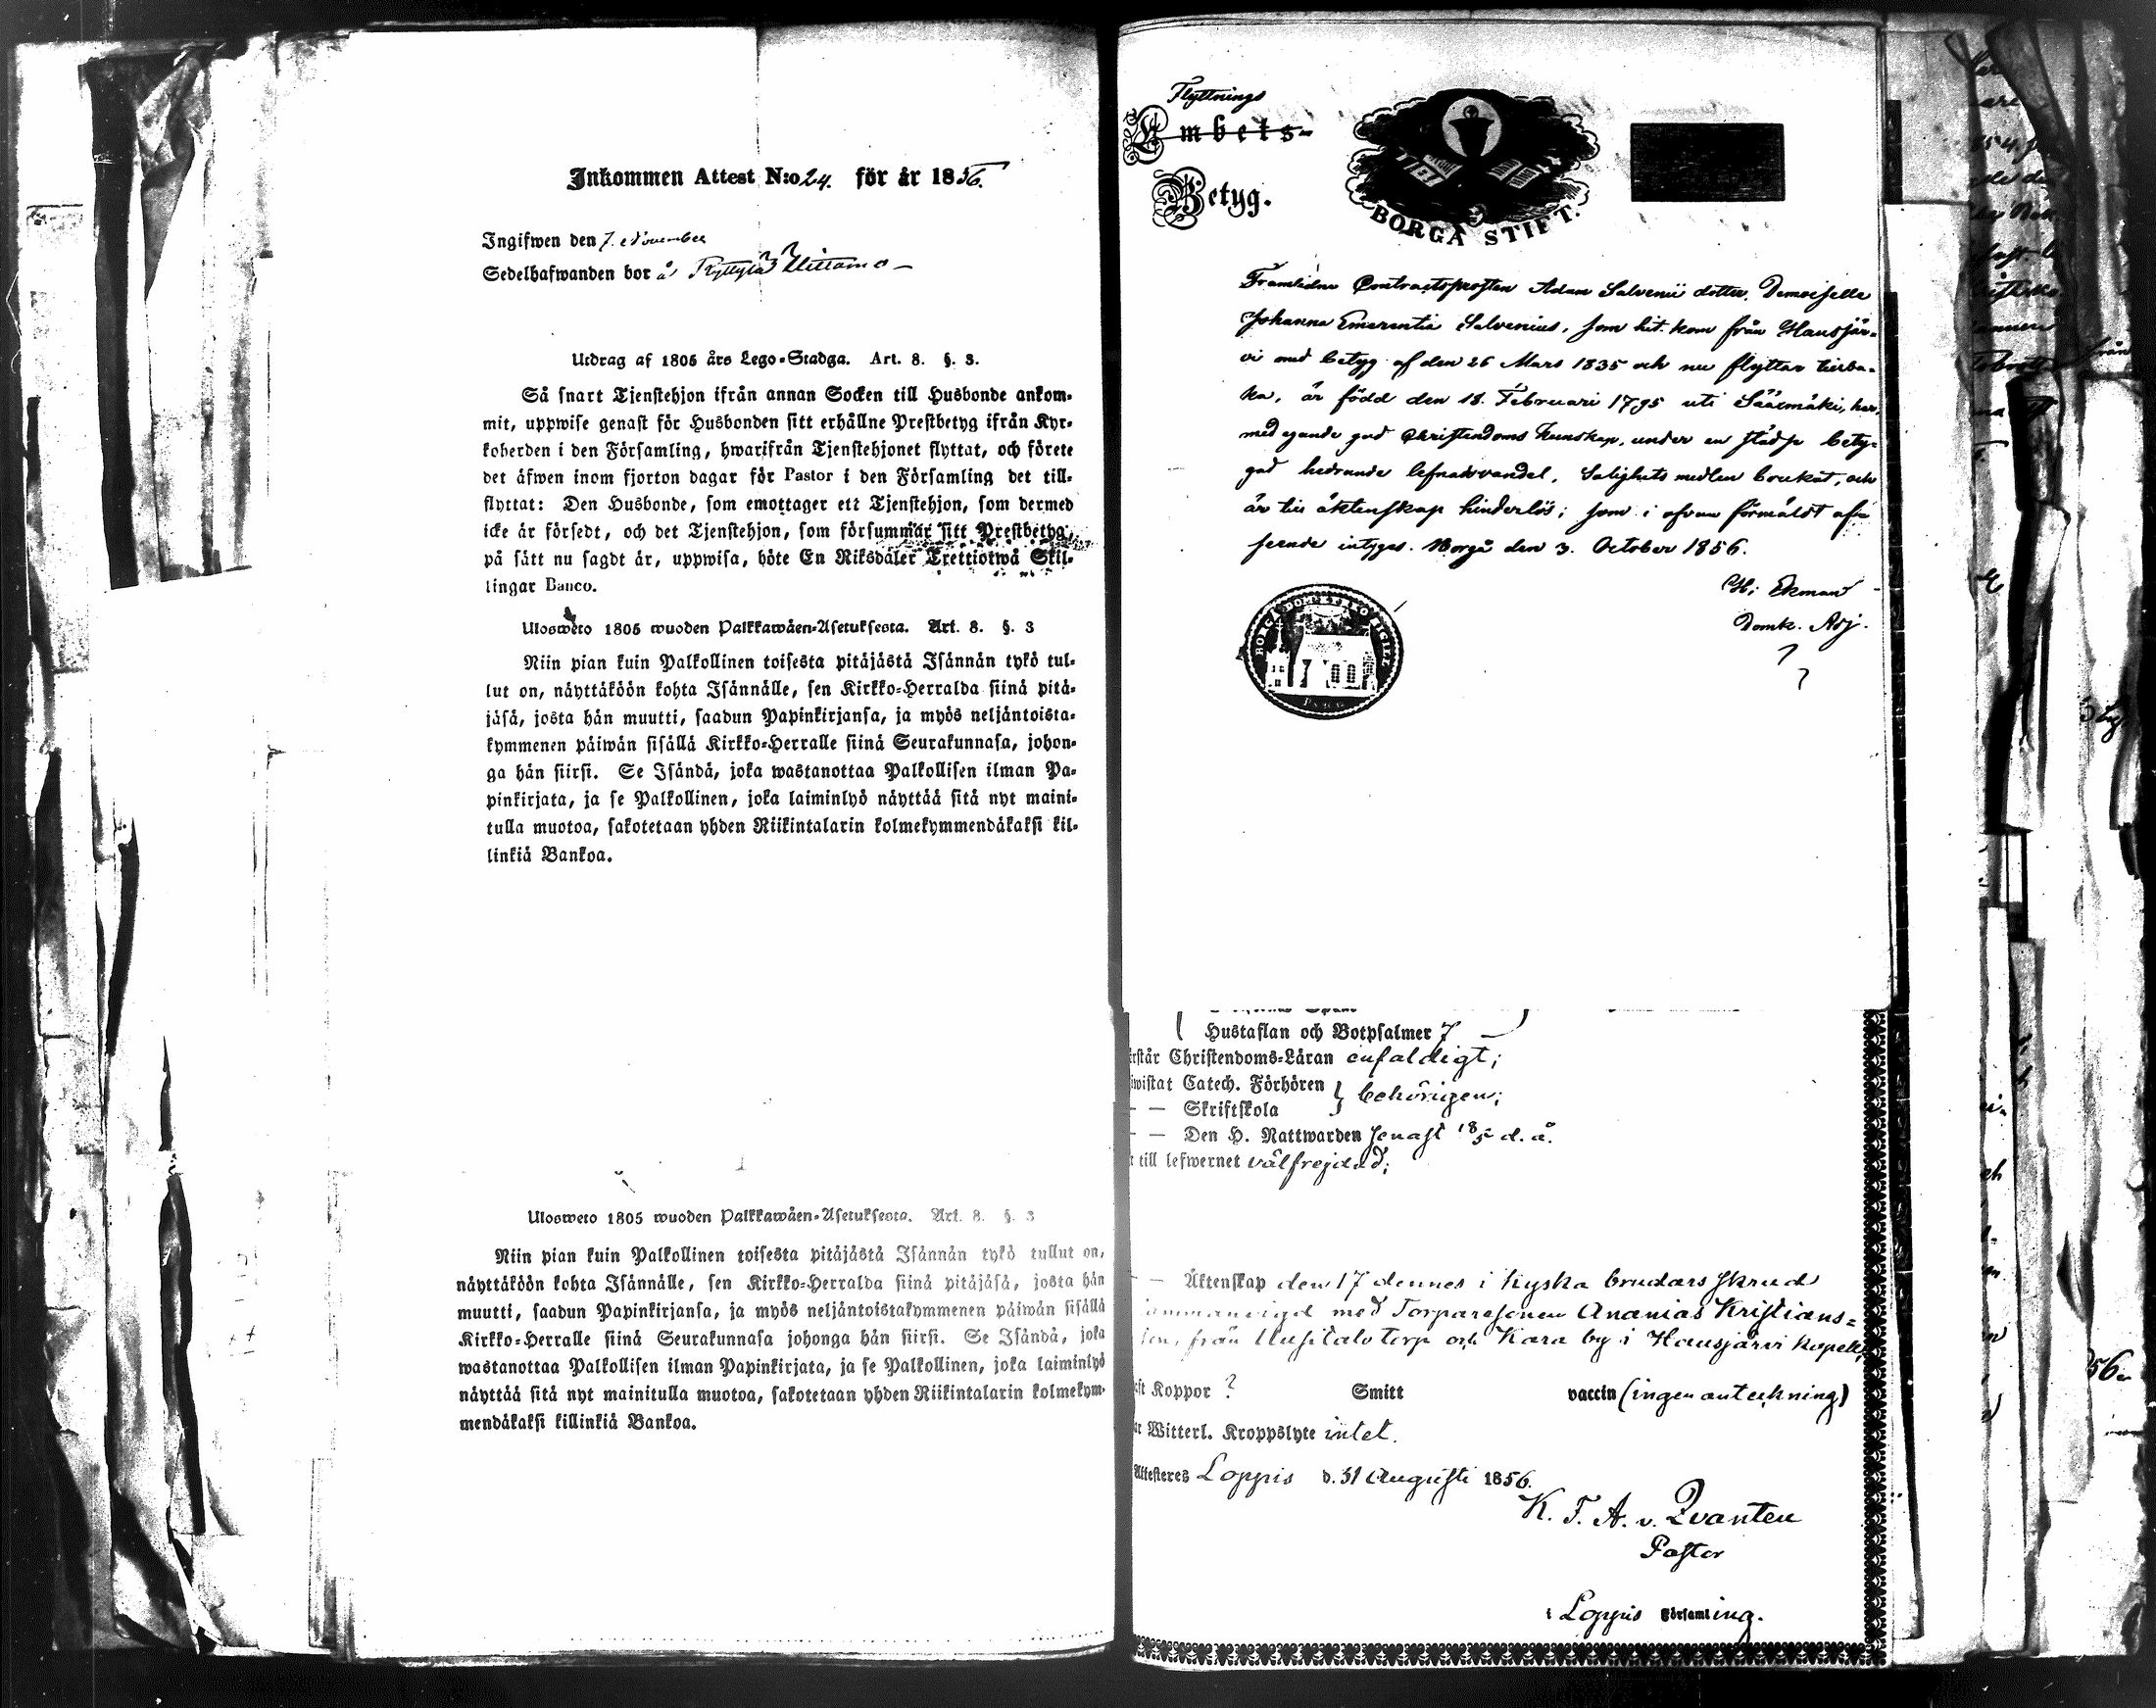 Inkommen Attest N:o 24. för år 1856.
Ingifwen den 7. November
Sedelhafwanden bor å
Utdrag af 1805 års Lego-Stadga. Art. 8. §. 3.
Så snart Tjenstehjon ifrån annan Socken till Husbonde ankom-
mit, uppwise genast för Husbonden sitt erhållne Prestbetyg ifrån Kyr-
koherden i den Församling, hwarifrån Tjenstehjonet flyttat, och förete
det äfwen inom fjorton dagar för Pastor i den Församling det till-
flyttat: Den Husbonde, som emottager ett Tjenstehjon, som dermed
icke är försedt, och det Tjenstehjon, som försummar sitt Prestbetyg,
på sätt nu sagdt är, uppwisa, böte En Riksdaler Trettiotwå Skil-
lingar Banco.
Uloswéto 1805 wuoden Palkkawäen-Asetuksesta. Art. 8. §. 3
Niin pian kuin Palkollinen toisesta pitäjästä Isännän tykö tul-
lut on, näyttäköön kohta Isännälle, sen Kirkko-Herralda siinä pitä-
jäsä, josta hän muutti, saadun Papinkirjansa, ja myös neljäntoista-
kymmenen päiwän sisällä Kirkko-Herralle siinä Seurakunnasa, johon-
ga hän siirsi. Se Isändä, joka wastanottaa Palkollisen ilman Pa-
pinkirjata, ja se Palkollinen, joka laiminlyö näyttää sitä nyt maini-
tulla muotoa, sakotetaan yhden Riikintalarin kolmekymmendäkaksi kil-
linkiä Bankoa.
Ulosweto 1805 wuoden Palkkawäen-Asetuksesta. Art. 8. §. 3
Niin pian kuin Palkollinen toisesta pitäjästä Isännän tykö tullut on,
näyttäköön kohta Isännälle, sen Kirkko-Herralda siinä pitäjäsä, josta hän
muutti, saadun Papinkirjansa, ja myös neljäntoistakymmenen päiwän sisällä
Kirkko-Herralle siinä Seurakunnasa johonga hän siirsi. Se Isändä, joka
wastanottaa Palkollisen ilman Papinkirjata, ja se Palkollinen, joka laiminlyö
näyttää sitä nyt mainitulla muotoa, sakotetaan yhden Riikintalarin kolmekym-
mendäkaksi killinkiä Bankoa.
Flyttnings
Embets-
Betyg.
BORGÅ STIFT.
Framlidne Contractsprosten Adam Salvenii dotter, Demoiselle
Johanna Emerentia Salvenius, som hit kom från Hausjär-
vi med betyg af den 26 Mars 1835 och nu flyttar tillba-
ka, är född den 18. Februari 1795 uti Sääxmäki, har,
med egande god Christendoms kunskap, under en städse bety-
gad hedrande lefnadsvandel, Salighets medlen brukat, och
är till äktenskap hinderlös; som i ofvan förmäldt afse-
seende intygas. Borgå den 3. October 1856.
H. Ekman
Domk. Adj.
Hustaflan och Botpsalmer 7
rstår Christendoms-Läran enfaldigt;
iwistat Catech. Förhören } behörigen;
— — Skriftskola
— — Den H. Nattwarden senast 18/5 d. å.
t till lefwernet välfrejdad;
— — Äktenskap den 17 dennes i kyska brudars skrud
med Torparesonen Ananias Kristians=
son, från torp och Kara by i Hausjärvi kapell;
Koppor ? Smitt vaccin (ingen anteckning)
Witterl. Kroppslyte intet.
Attesteres Loppis d. 31 Augusti 1856.
K. F. A. v. Qvanten
Pastor
i Loppis Församling.